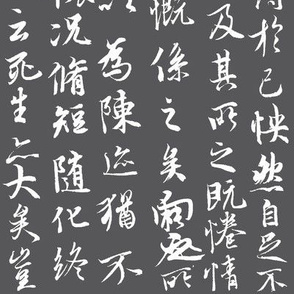 於己怏然自足不
及其所之既惓情
慨係之矣向之所
為陳迹猶不
況脩短隨化終
云死生亦大矣豈